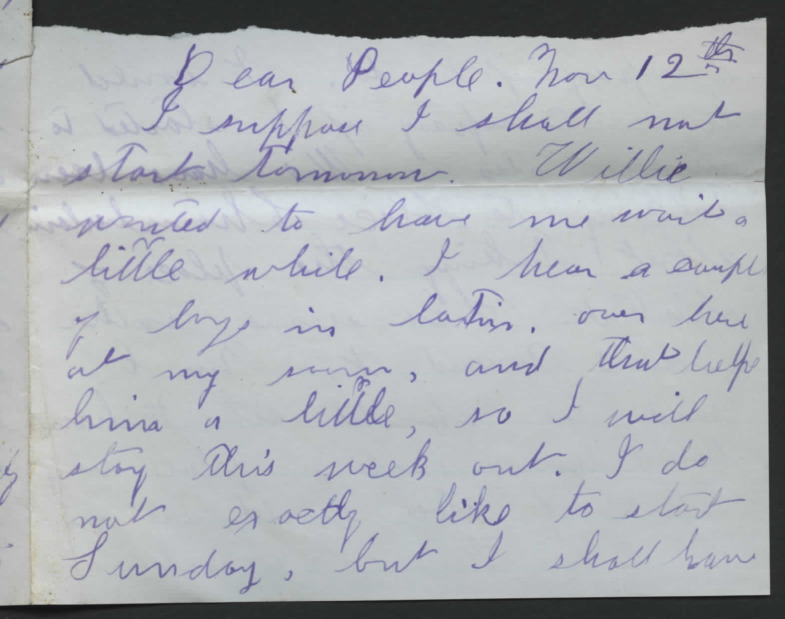 Dear People. Nov 12th
I suppose I shall not
start tomorrow. Willie
wanted to have me wait a
little while. I hear a couple
of boys in Latin, over here
at my room, and that helps
him a little, so I will
stay this week out. I do
not exactly like to start
Sunday, but I shall have